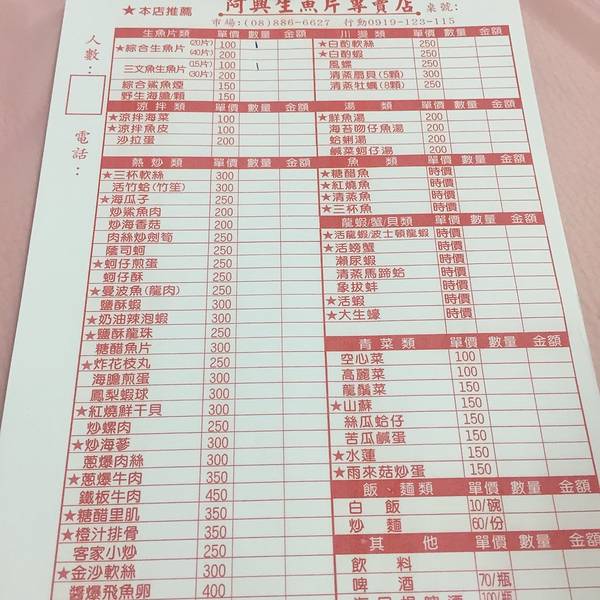 ★本店推薦
阿興生魚片專賣店 桌號:
市場:(08)886-6627 行動0919-123-115
人數:
電話:
生魚片類 單價 數量 金額
★綜合生魚片 (20片) 100
(40片) 200
三文魚生魚片 (15片) 100
(30片) 200
綜合鯊魚煙 150
野生海膽/顆 150
涼拌類 單價 數量 金額
★涼拌海菜 100
★涼拌魚皮 100
沙拉蛋 200
熱炒類 單價 數量 金額
★三杯軟絲 300
活竹蛤(竹笙) 300
★海瓜子 200
炒鯊魚肉 250
炒海香菇 200
肉絲炒劍筍 250
蔭司蚵 250
★蚵仔煎蛋 200
蚵仔酥 250
★曼波魚(龍肉) 250
鹽酥蝦 300
★奶油辣泡蝦 300
★鹽酥龍珠 250
糖醋魚片 300
★炸花枝丸 250
海膽煎蛋 300
鳳梨蝦球 300
★紅燒鮮干貝 300
炒螺肉 250
★炒海蔘 300
蔥爆肉絲 300
★蔥爆牛肉 350
鐵板牛肉 450
★糖醋里肌 350
★橙汁排骨 350
客家小炒 250
★金沙軟絲 300
醬爆飛魚卵 400
川燙類 單價 數量 金額
★白酌軟絲 250
★白酌蝦 250
風螺 200
清蒸扇貝(5顆) 300
清蒸牡蠣(8顆) 250
湯類 單價 數量 金額
★鮮魚湯 200
海苔吻仔魚湯 200
蛤蜊湯 200
鹹菜蚵仔湯 200
魚類 單價 數量 金額
★糖醋魚 時價
★紅燒魚 時價
★清蒸魚 時價
★三杯魚 時價
龍蝦/蟹/貝類 單價 數量 金額
★活龍蝦/波士頓龍蝦 時價
★活螃蟹 時價
瀨尿蝦 時價
清蒸馬蹄蛤 時價
象拔蚌 時價
★活蝦 時價
★大生蠔 時價
青菜類 單價 數量 金額
空心菜 100
高麗菜 100
龍鬚菜 150
★山蘇 150
絲瓜蛤仔 150
苦瓜鹹蛋 150
★水蓮 150
★雨來菇炒蛋 150
飯、麵類 單價 數量 金額
白飯 10/碗
炒麵 60/份
其他 單價 數量 金額
飲料
啤酒 70/瓶